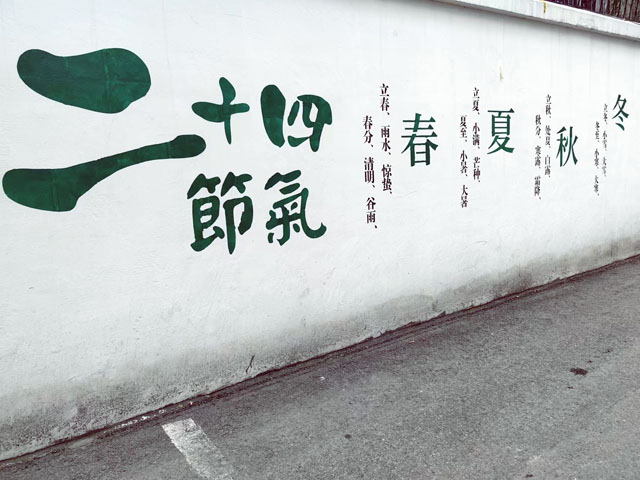 二十四
節氣
春
立春、雨水、惊蛰、
春分、清明、谷雨、
夏
立夏、小满、芒种、
夏至、小暑、大暑
秋
立秋、处夏、白露、
秋分、寒露、霜降、
冬
立冬、小雪、大雪、
冬至、小寒、大寒、